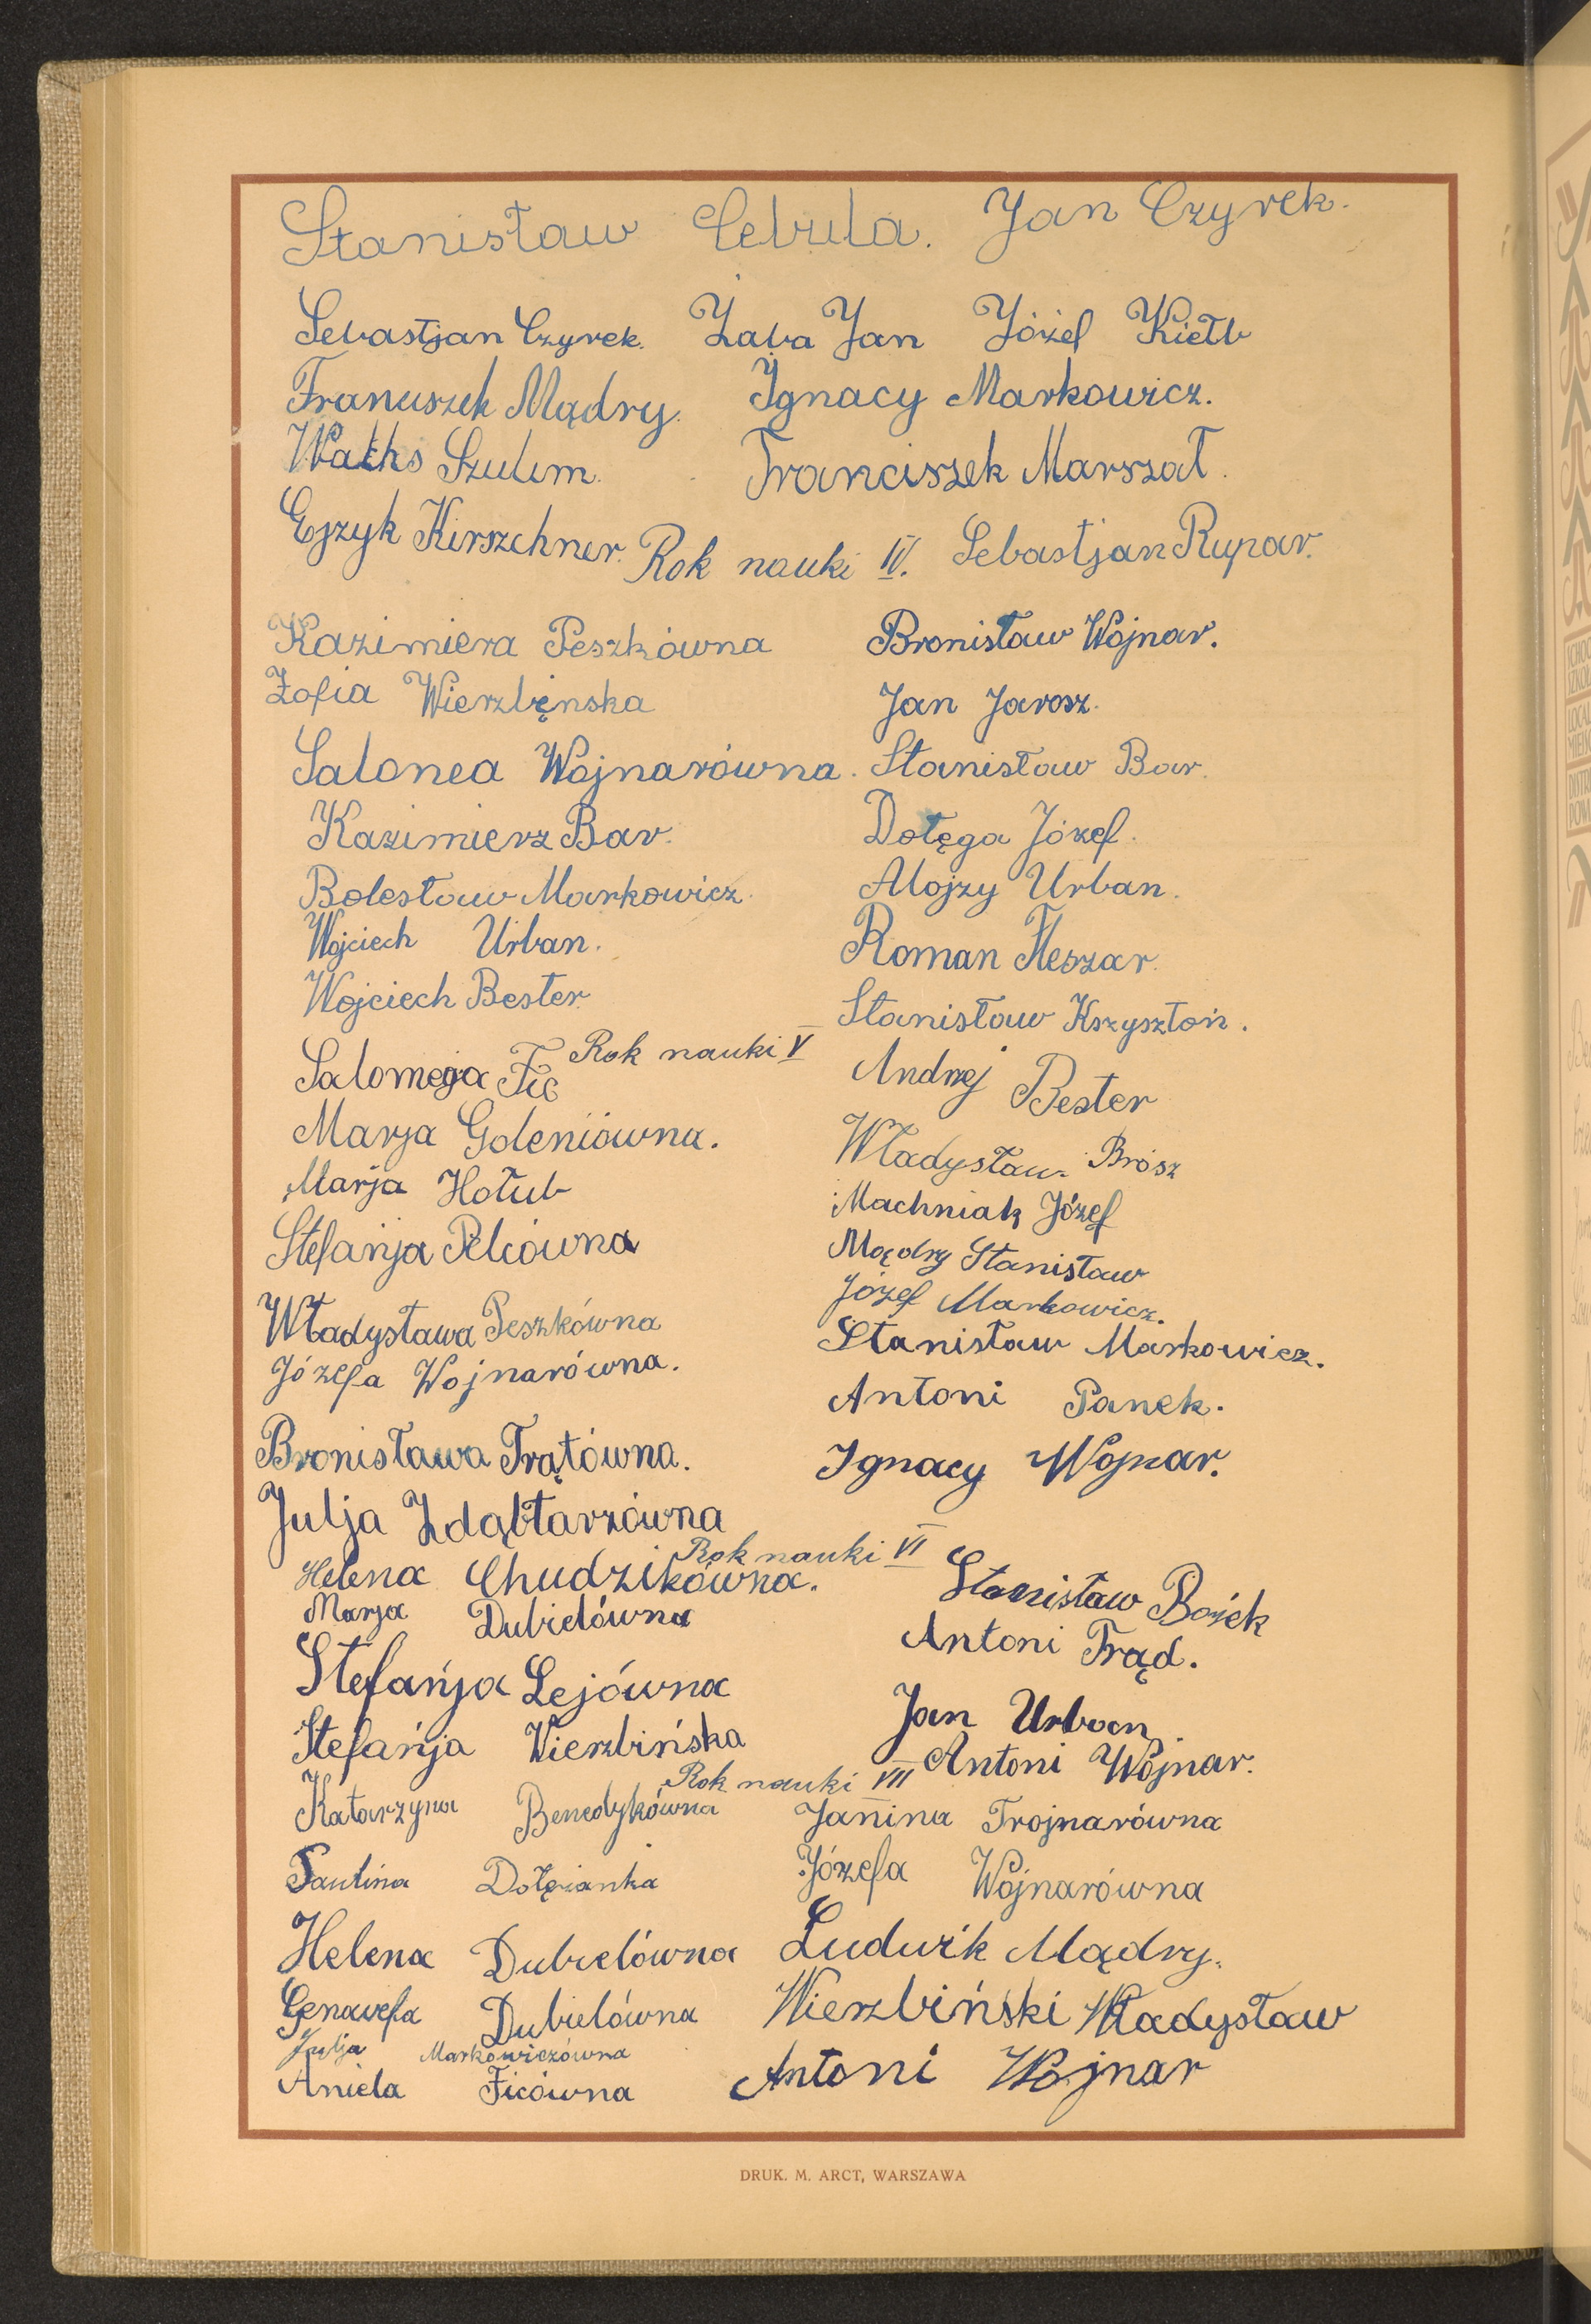 Stanisław Cebula. Jan Czyrek.
Sebastjan Czyrek. Żaba Jan Józef Kiełb
Franciszek Mądry. Ignacy Markowicz.
Wachs Szulim. Franciszek Marszał.
Ejzyk Kirszchner. Rok nauki IV. Sebastjan Rupar.
Kazimiera Peszkówna Bronisław Wojnar.
Zofia Wierzbińska Jan Jarosz.
Salonea Wojnarówna. Stanisław Bar.
Kazimierz Bar. Dołęga Józef.
Bolesław Markowicz. Alojzy Urban.
Wojciech Urban. Roman Fleszar.
Wojciech Bester. Stanisław Kszysztoń.
Salomeja Fic Rok nauki V Andrzej Bester
Marja Goleniówna. Władysław Brósz
Marja Hołub Machniak Józef
Stefanja Pelcówna Mądry Stanisław
Józef Markowicz.
Władysława Peszkówna Stanisław Markowicz.
Józefa Wojnarówna. Antoni Panek.
Bronisława Trątówna. Ignacy Wojnar.
Julja Zdąbłarzówna
Rok nauki VI
Helena Chudzikówna. Stanisław Bosek
Marja Dubielówna Antoni Trąd.
Stefańja Lejówna Jan Urban
Stefańja Wierzbińska Antoni Wojnar.
Rok nauki VII
Katarzyna Benedykówna Janina Trojnarówna
Paulina Dołężanka Józefa Wojnarówna
Helena Dubielówna Ludwik Mądry.
Genowefa Dubielówna Wierzbiński Władysław
Julja Markowiczówna
Aniela Ficówna Antoni Wojnar
DRUK. M. ARCT, WARSZAWA